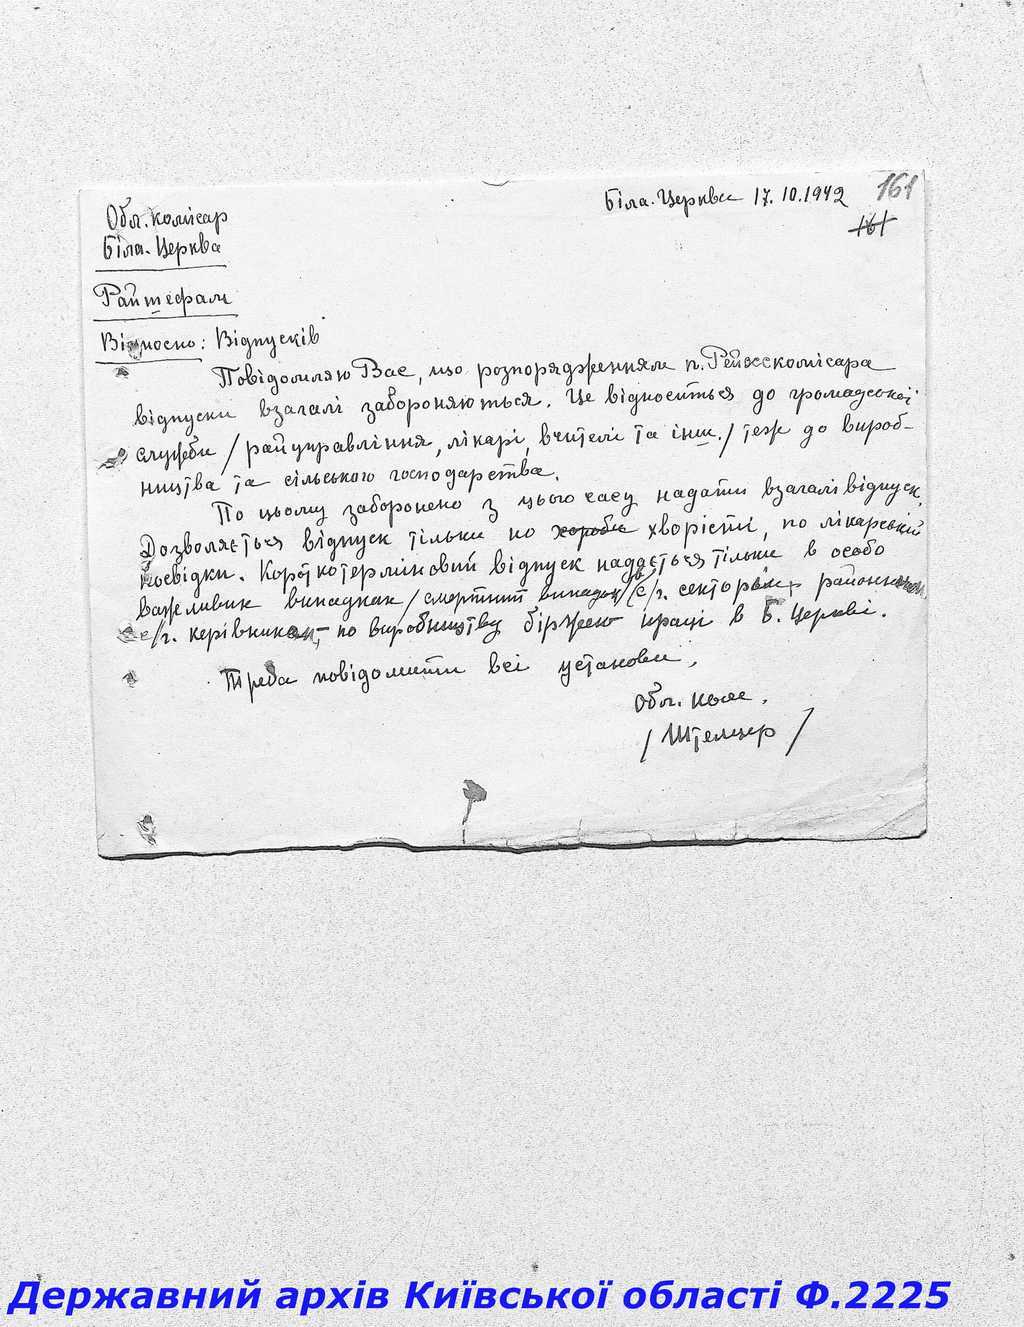 161
Біла-Церква 17.10.1942
161
Обл. комісар
Біла-Церква
Райшефам
Відносно: Відпусків
Повідомляю Вас, що розпорядженням п. Рейхскомісара
відпуски взагалі забороняються. Це відноситься до громадської
служби /райуправління, лікарі, вчителі та інш./ теж до вироб-
ництва та сільського господарства.
По цьому заборонено з цього часу надати взагалі відпуск.
Дозволяється відпуск тільки по хороби хворісті, по лікарській
посвідки. Короткотерміновий відпуск надається тільки в особо
важливих випадках /смертний випадок/ в с/г. секторах районним
с/г. керівником, - по виробництву біржею праці в Б. Церкві.
Треба повідомити всі установи.
Обл. ком.
/ Штельцер /
Державний архів Київської області Ф.2225